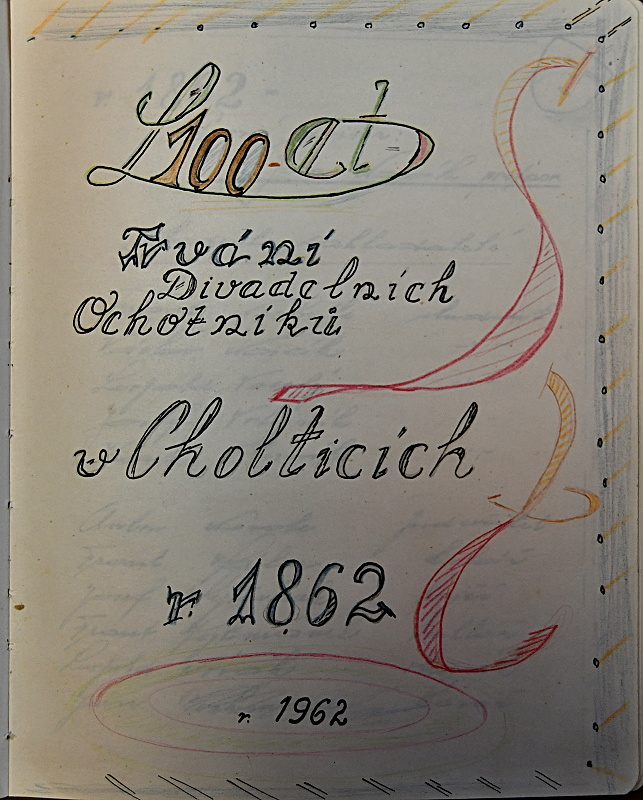 100-
Trvání
Divadelních
Ochotníků
v Cholticích
r. 1862
r. 1962